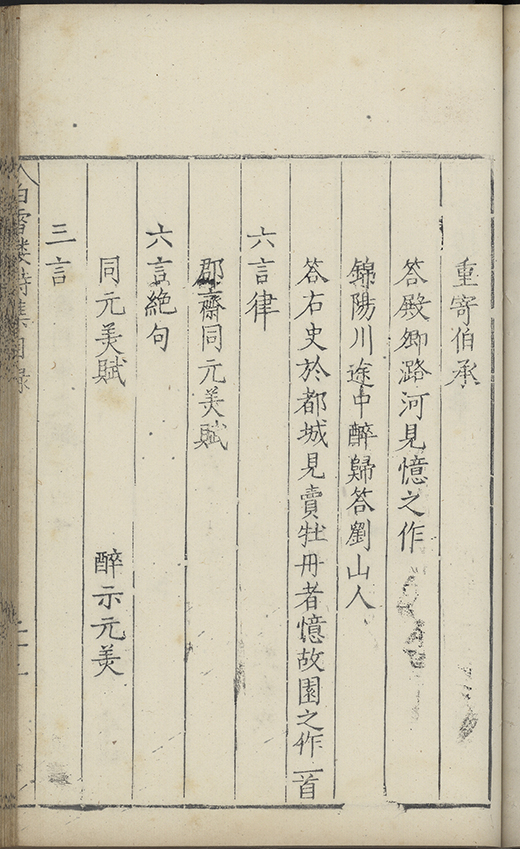 重寄伯承
答殿卿潞河見憶之作
錦陽川途中醉歸答劉山人
答右史於都城見賣牡丹者憶故園之作 一首
六言律
郡齋同元美賦
六言絶句
同元美賦 醉示元美
三言
白雪樓詩集目錄